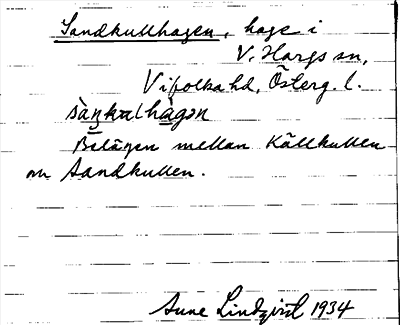 Sandkullhagen, hage i
V. Hargs sn,
Vifolka hd, Österg. l.
sàŋkalhàgən
Belägen mellan Källkullen
och Sandkullen.
Sune Lindqvist 1934